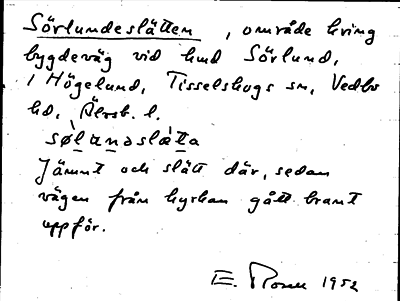 Sörlundeslätten, område kring
bygdeväg vid hmd Sörlund,
i Högelund, Tisselskogs sn, Vedbo
hd, Älvsb. l.
sølandslàtta
Jämnt och slätt där, sedan
vägen från kyrkan gått brant
uppför.
E. 1952